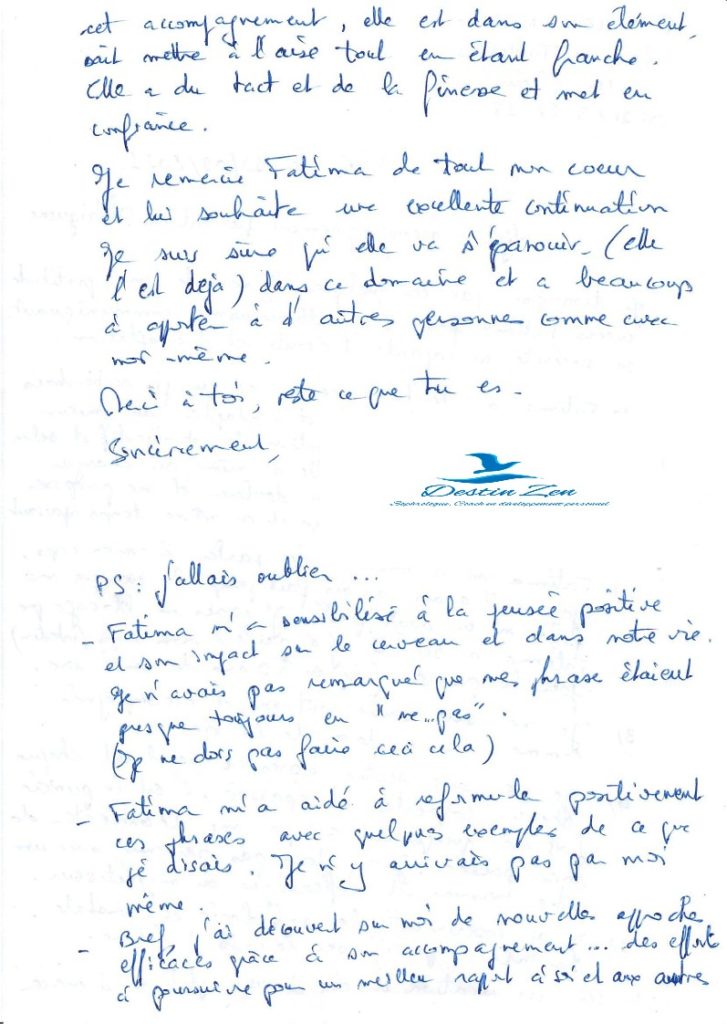 cet accompagnement, elle est dans son élément,
sait mettre à l'aise tout en étant franche.
Elle a du tact et de la finesse et met en
confiance.
Je remercie Fatima de tout mon coeur
et lui souhaite une excellente continuation
Je suis sûre qu'elle va s'épanouir (elle
l'est dejà) dans ce domaine et a beaucoup
à apporter à d'autres personnes comme avec
moi-même.
Merci à toi, reste ce que tu es.
Sincèrement,
Destin Zen
Sophrologue, Coach en développement personnel
PS: j'allais oublier ...
- Fatima m'a sensibilisé à la pensée positive
et son impact sur le cerveau et dans notre vie.
Je n'avais pas remarqué que mes phrase étaient
presque toujours en "ne...pas".
(Je ne dois pas faire ceci cela)
- Fatima m'a aidé à reformuler positivement
ces phrases avec quelques exemples de ce que
je disais. Je n'y arrivais pas par moi
même.
- Bref, j'ai découvert sur moi de nouvelles approches
efficaces grâce à son accompagnement... des efforts
à poursuivre pour un meilleur rapport à soi et aux autres